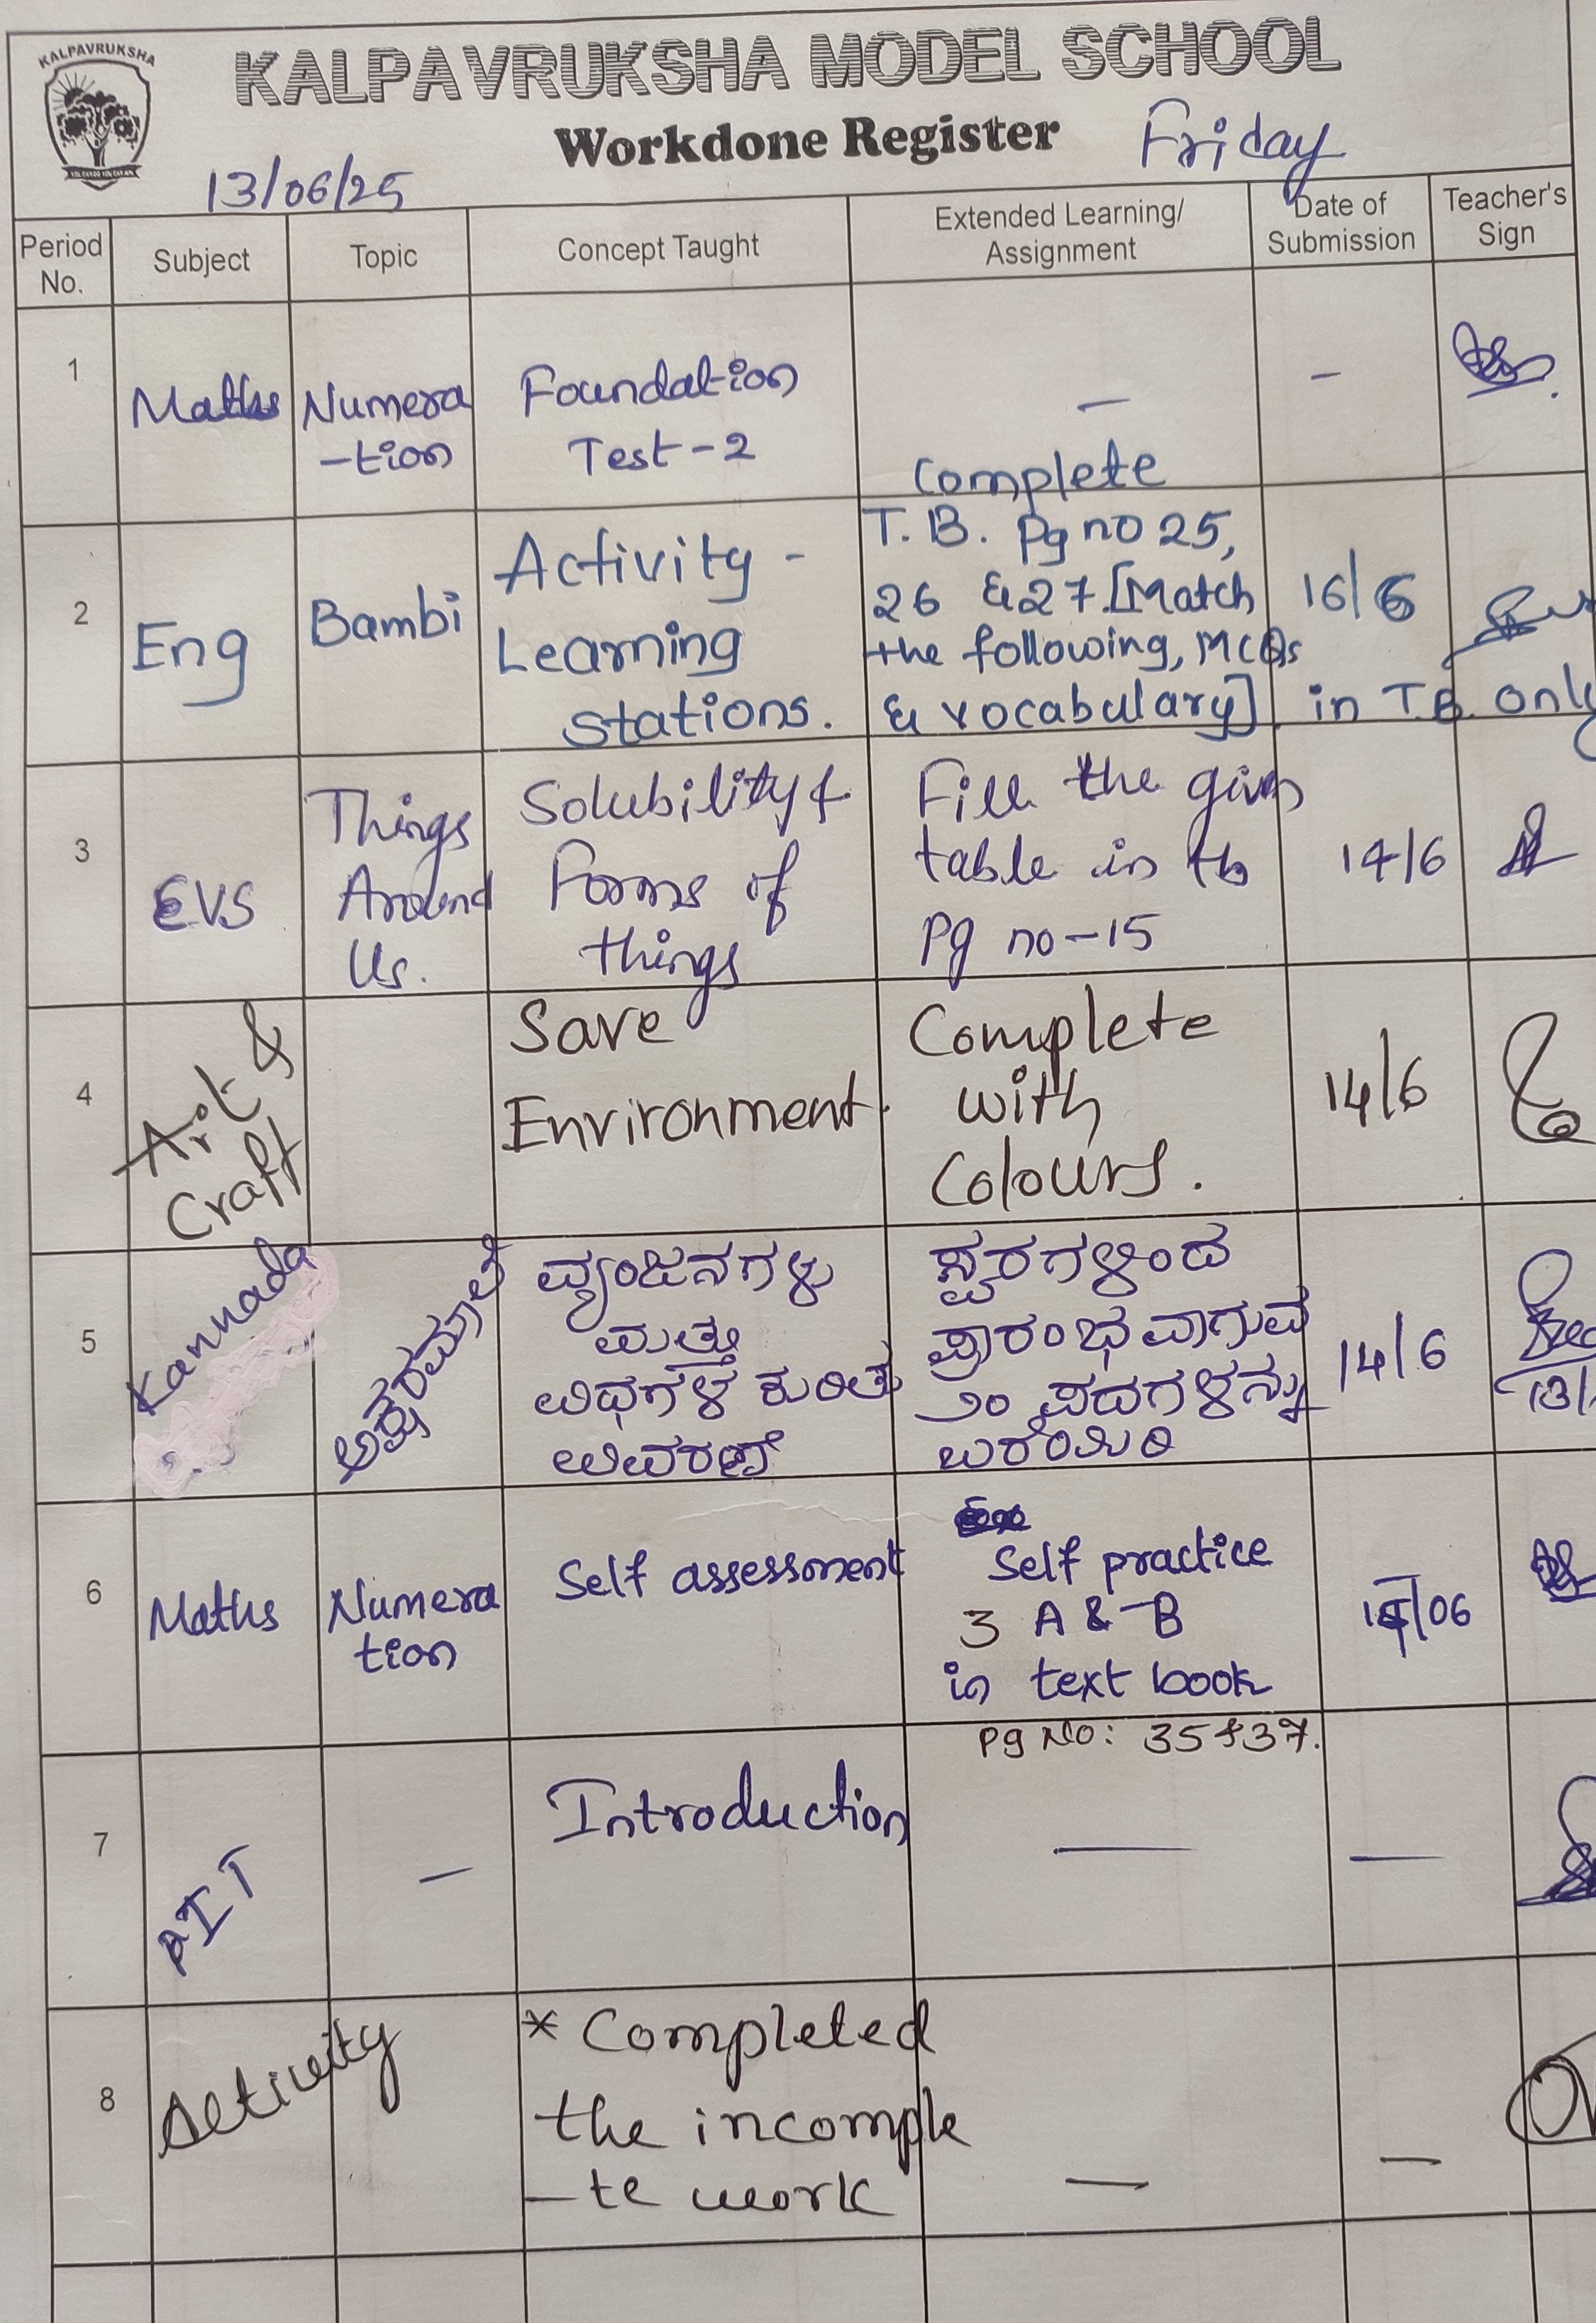 KALPAVRUKSHA
KALPAVRUKSHA MODEL SCHOOL
Workdone Register
Friday
13/06/25
Period No.
Subject
Topic
Concept Taught
Extended Learning/
Assignment
Date of
Submission
Teacher's
Sign
1
Maths
Numera
-tion
Foundation
Test-2
-
-
2
Eng
Bambi
Activity -
Learning
stations.
Complete
T.B. Pg no 25,
26 & 27.[Match
the following, MCQs
& vocabulary] in T.B. only
16/6
3
EVS
Things
Around
Us.
Solubility &
Forms of
things
Fill the given
table in tb
Pg no-15
14/6
4
Art &
Craft
Save
Environment.
Complete
with
Colours.
14/6
5
Kannada
ಅಕ್ಷರಮಾಲೆ
ವ್ಯಂಜನಗಳು
ಮತ್ತು
ವಿಧಗಳ ಕುರಿತು
ವಿವರಣೆ
ಸ್ವರಗಳಿಂದ
ಪ್ರಾರಂಭವಾಗುವ
೨೦ ಪದಗಳನ್ನು
ಬರೆಯಿರಿ
14/6
6
Maths
Numera
tion
Self assessment
Self practice
3 A & B
in text book
Pg No: 35 & 37.
/06
7
PIT
-
Introduction
-
-
8
Activity
* Completed
the incomple
-te work
-
-